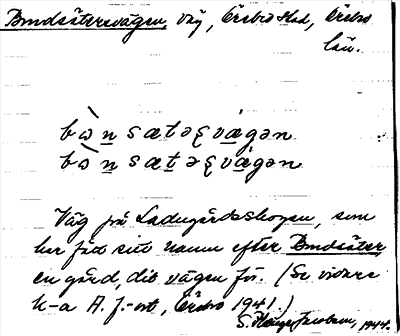 Bondsätersvägen, väg, Örebro stad, Örebro
län.
bòn sætəʂvägən
bòn sætəʂvägən
Väg på Ladugårdsskogen, som
har fått sitt namn efter Bondsäter,
en gård, dit vägen för. (Se vidare
h-a A. f.-ort, Örebro 1941.)
S. 1944.